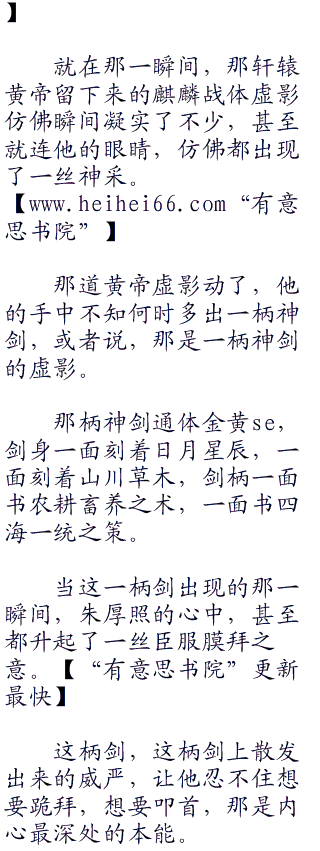 】
就在那一瞬间，那轩辕
黄帝留下来的麒麟战体虚影
仿佛瞬间凝实了不少，甚至
就连他的眼睛，仿佛都出现
了一丝神采。
【www.heihei66.com“有意
思书院”】
那道黄帝虚影动了，他
的手中不知何时多出一柄神
剑，或者说，那是一柄神剑
的虚影。
那柄神剑通体金黄se，
剑身一面刻着日月星辰，一
面刻着山川草木，剑柄一面
书农耕畜养之术，一面书四
海一统之策。
当这一柄剑出现的那一
瞬间，朱厚照的心中，甚至
都升起了一丝臣服膜拜之
意。【“有意思书院”更新
最快】
这柄剑，这柄剑上散发
出来的威严，让他忍不住想
要跪拜，想要叩首，那是内
心最深处的本能。